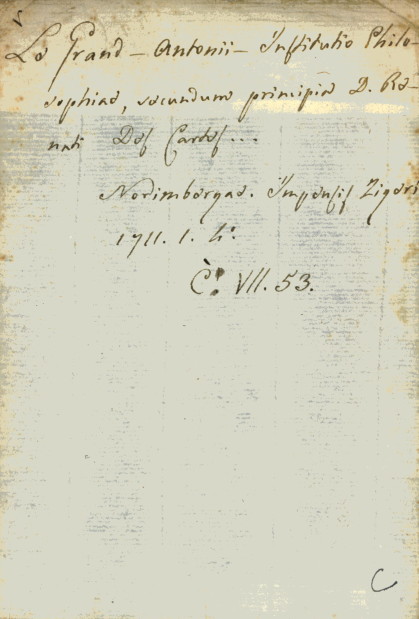 Le Grand – Antonii – Institutio Philo-
sophiae, secundum principia D. Re-
nati Des Cartes...
Norimbergae. Impensis Zigeri
1711. 1. 4°.
C. VII. 53.
C